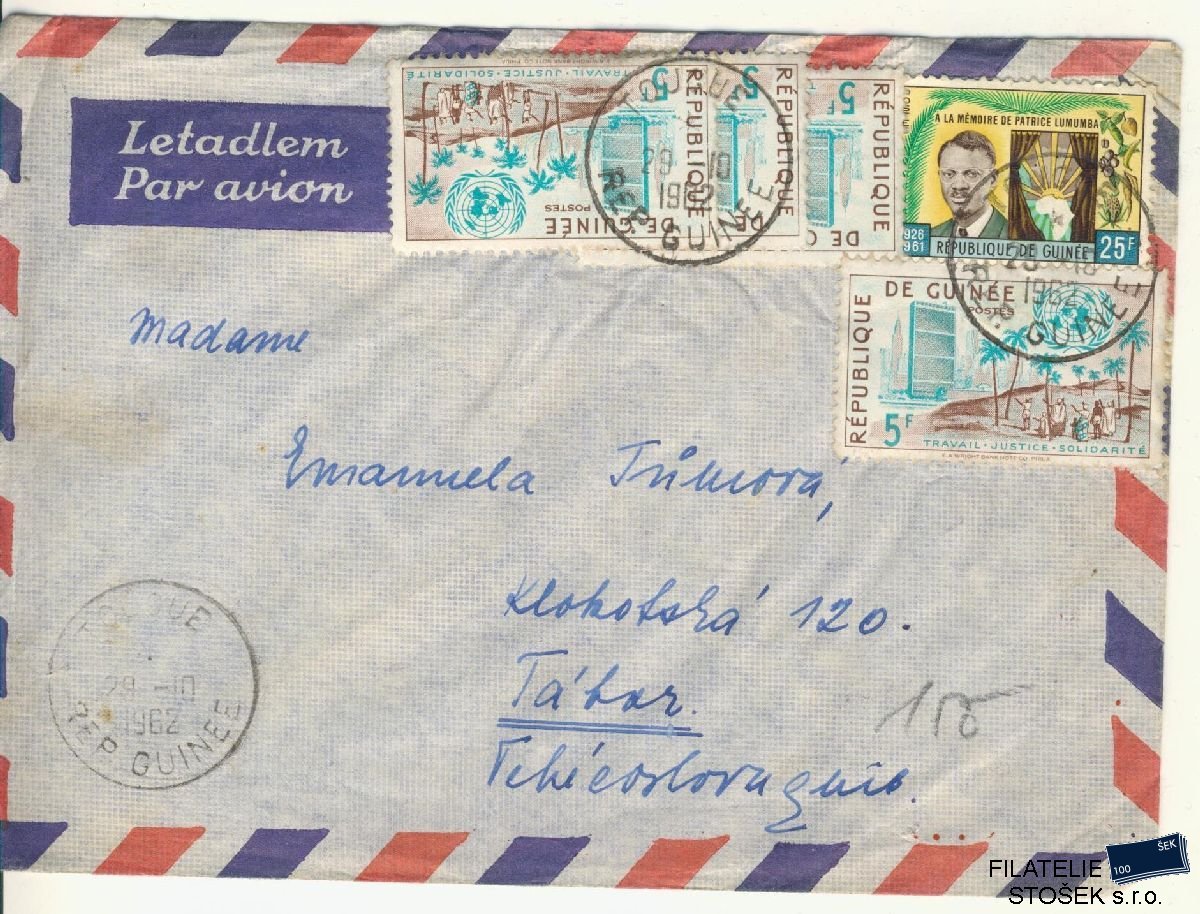 Letadlem
Par avion
TRAVAIL · JUSTICE · SOLIDARITÉ
5F
RÉPUBLIQUE
DE GUINÉE
POSTES
5
RÉPUBLIQUE
DE
5F
RÉPUBLIQUE
DE G
A LA MÉMOIRE DE PATRICE LUMUMBA
1961
RÉPUBLIQUE DE GUINÉE
25F
29 -10
1962
REP. GUINEE
29 -10
1962
GUINEE
RÉPUBLIQUE
DE GUINÉE
POSTES
5F
TRAVAIL · JUSTICE · SOLIDARITÉ
Madame
Emanuela Tůmová,
Klokotská 120.
Tábor.
Tchécoslovaquie.
29 -10
1962
REP. GUINEE
FILATELIE
STOŠEK s.r.o.
100
ŠEK